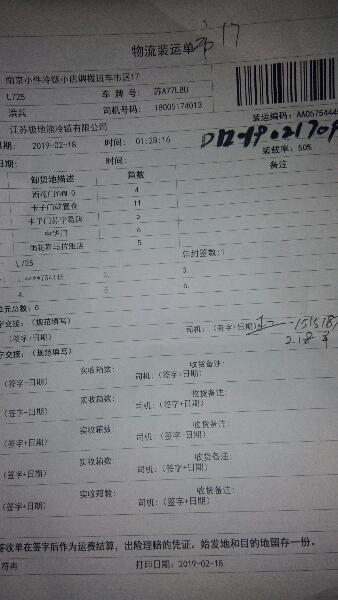 物流装运单 市17
南京小件冷链小店调拨班车市区17
L725 车 牌 号: 苏A77LBU
洪兵 司机号码: 18005174013
江苏极地熊冷链有限公司 装运编码: AA0575444
日期: 2019-02-18 时间: 01:28:16
日期: 时间: 装载率: 50%
卸货地描述 箱数 备注
4
卡子门前置仓 11
卡子门苏宁易购 5
中华门 6
雨花
5
L725 总封签数:
3.
4. 5. 6.
单元总数: 0
字交接: (规范填写)
(签字+日期) 司机: (签字+日期)
2.18
字交接: (规范填写)
实收箱数: 收货备注:
(签字+日期) 司机: (签字+日期)
实收箱数: 收货备注:
(签字+日期) 司机: (签字+日期)
实收箱数: 收货备注:
(签字+日期) 司机: (签字+日期)
实收箱数: 收货备注:
(签字+日期) 司机: (签字+日期)
实收箱数: 收货备注:
(签字+日期) 司机: (签字+日期)
签收单在签字后作为运费结算，出险理赔的凭证，始发地和目的地留存一份。
符冉 打印日期: 2019-02-18